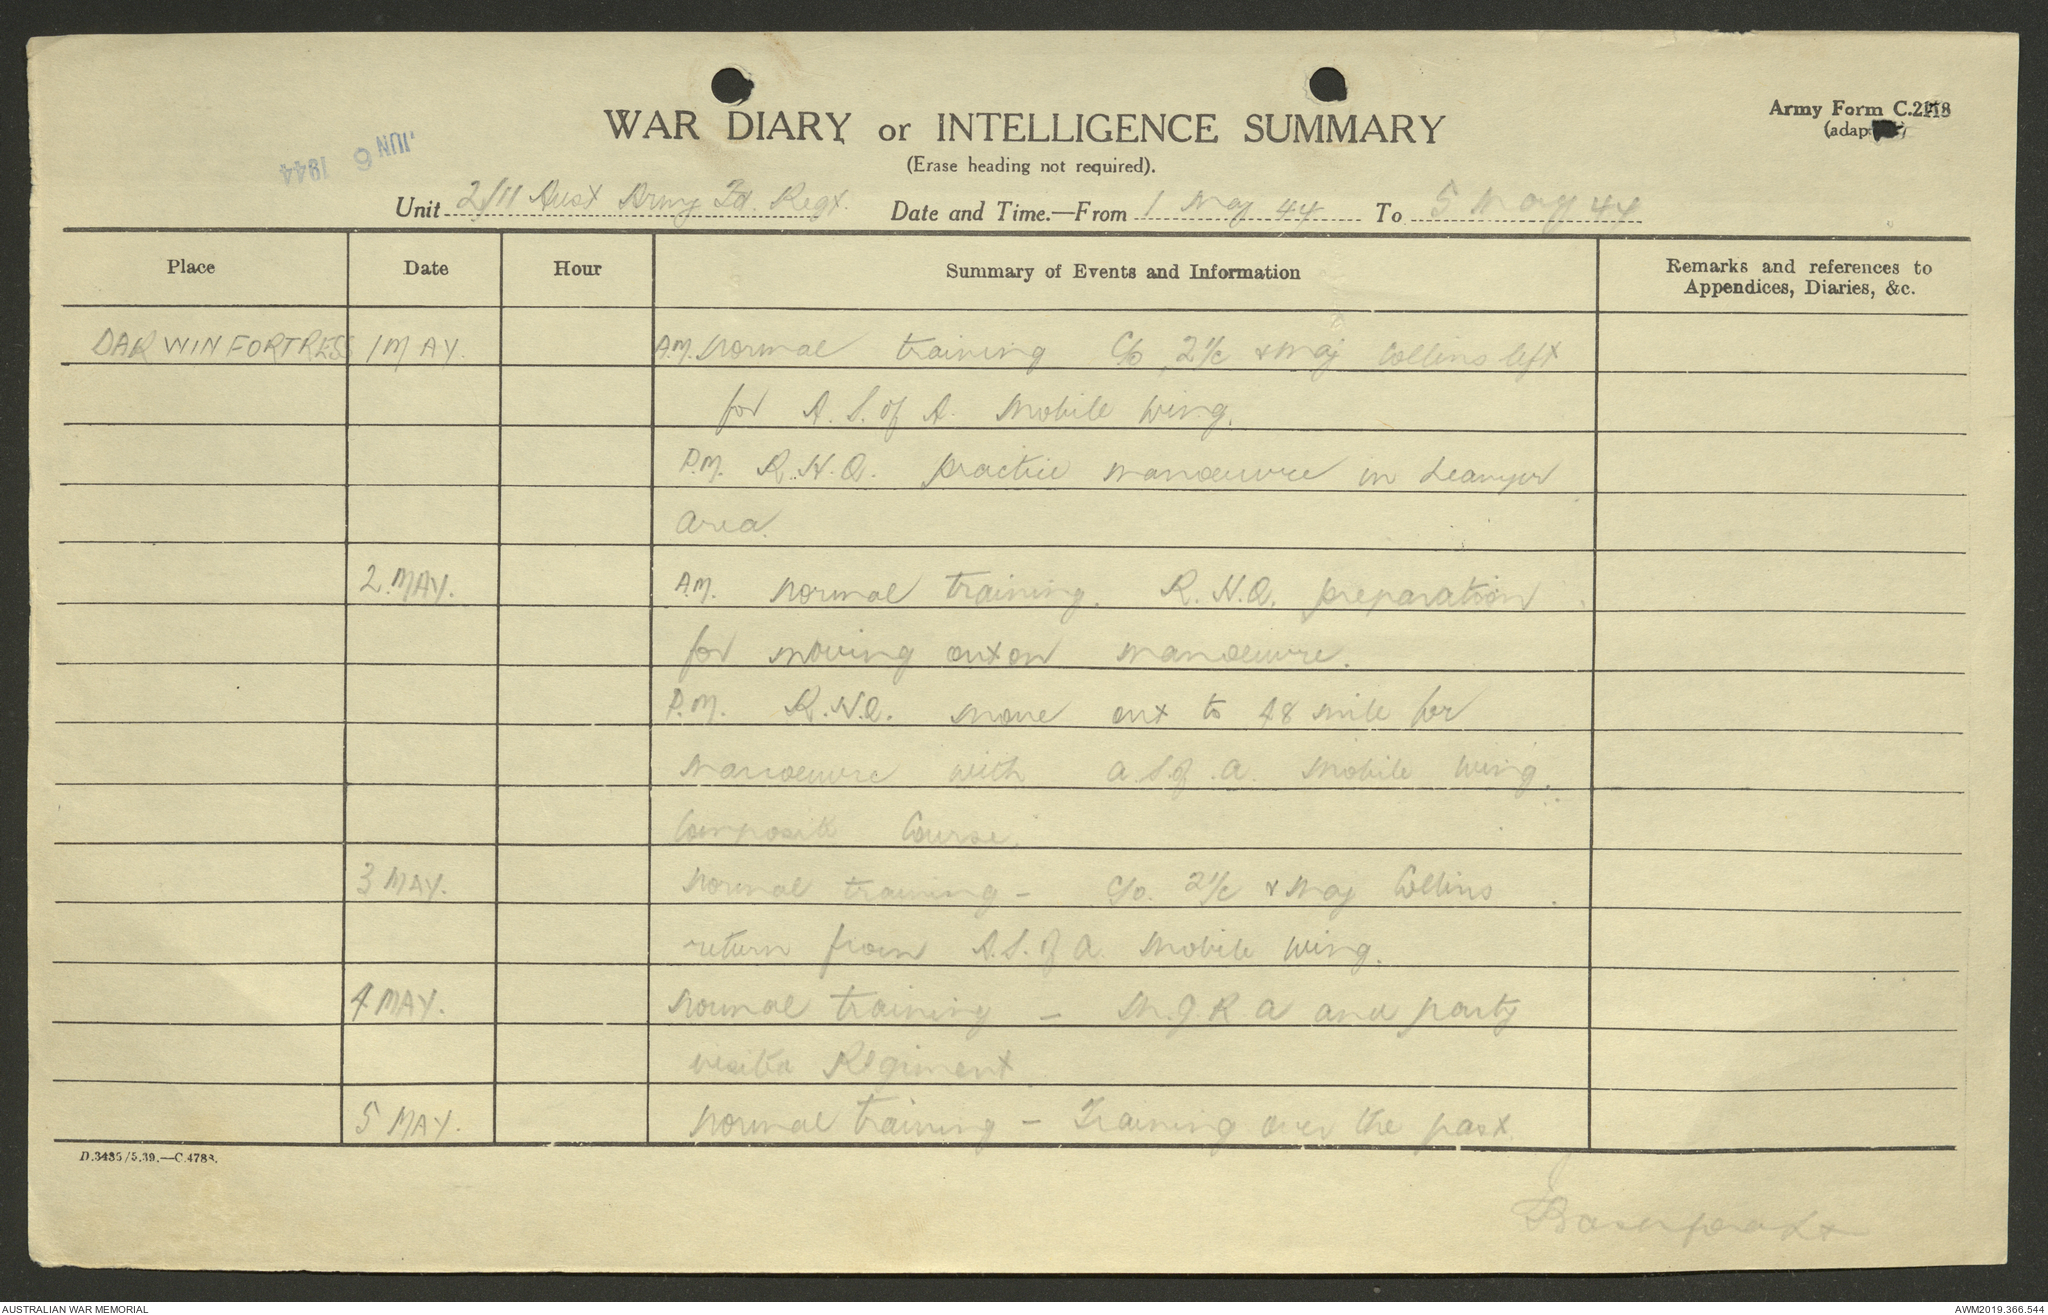 WAR DIARY or INTELLIGENCE SUMMARY
Army Form C.2118
(Erase heading not required).
JUN 6 1944
Unit 2/11 Aust Army Fd. Regt. Date and Time.—From 1 May 44 To 5 May 44
Place Date Hour Summary of Events and Information Remarks and references to
Appendices, Diaries, &c.
DARWIN FORTRESS 1 MAY. A.M. Normal training C/o, 2 I/c & Maj Collins left
for A.S. of A. Mobile Wing.
P.M. R.H.Q. practice manoeuvre in Leanyer
area.
2. MAY. A.M. Normal training. R.H.Q. preparation
for moving out on manoeuvre.
P.M. R.H.Q. move out to 48 mile for
manoeuvre with A.S. of A. Mobile Wing.
Composite Course.
3 MAY. Normal training - C/o. 2 I/c & Maj Collins
return from A.S. of A. Mobile Wing.
4 MAY. Normal training - M.G.R.A and party
visited Regiment.
5 MAY. Normal training - Training over the past
D.3435/5.39.—C.4788.
AUSTRALIAN WAR MEMORIAL
AWM2019.366.544